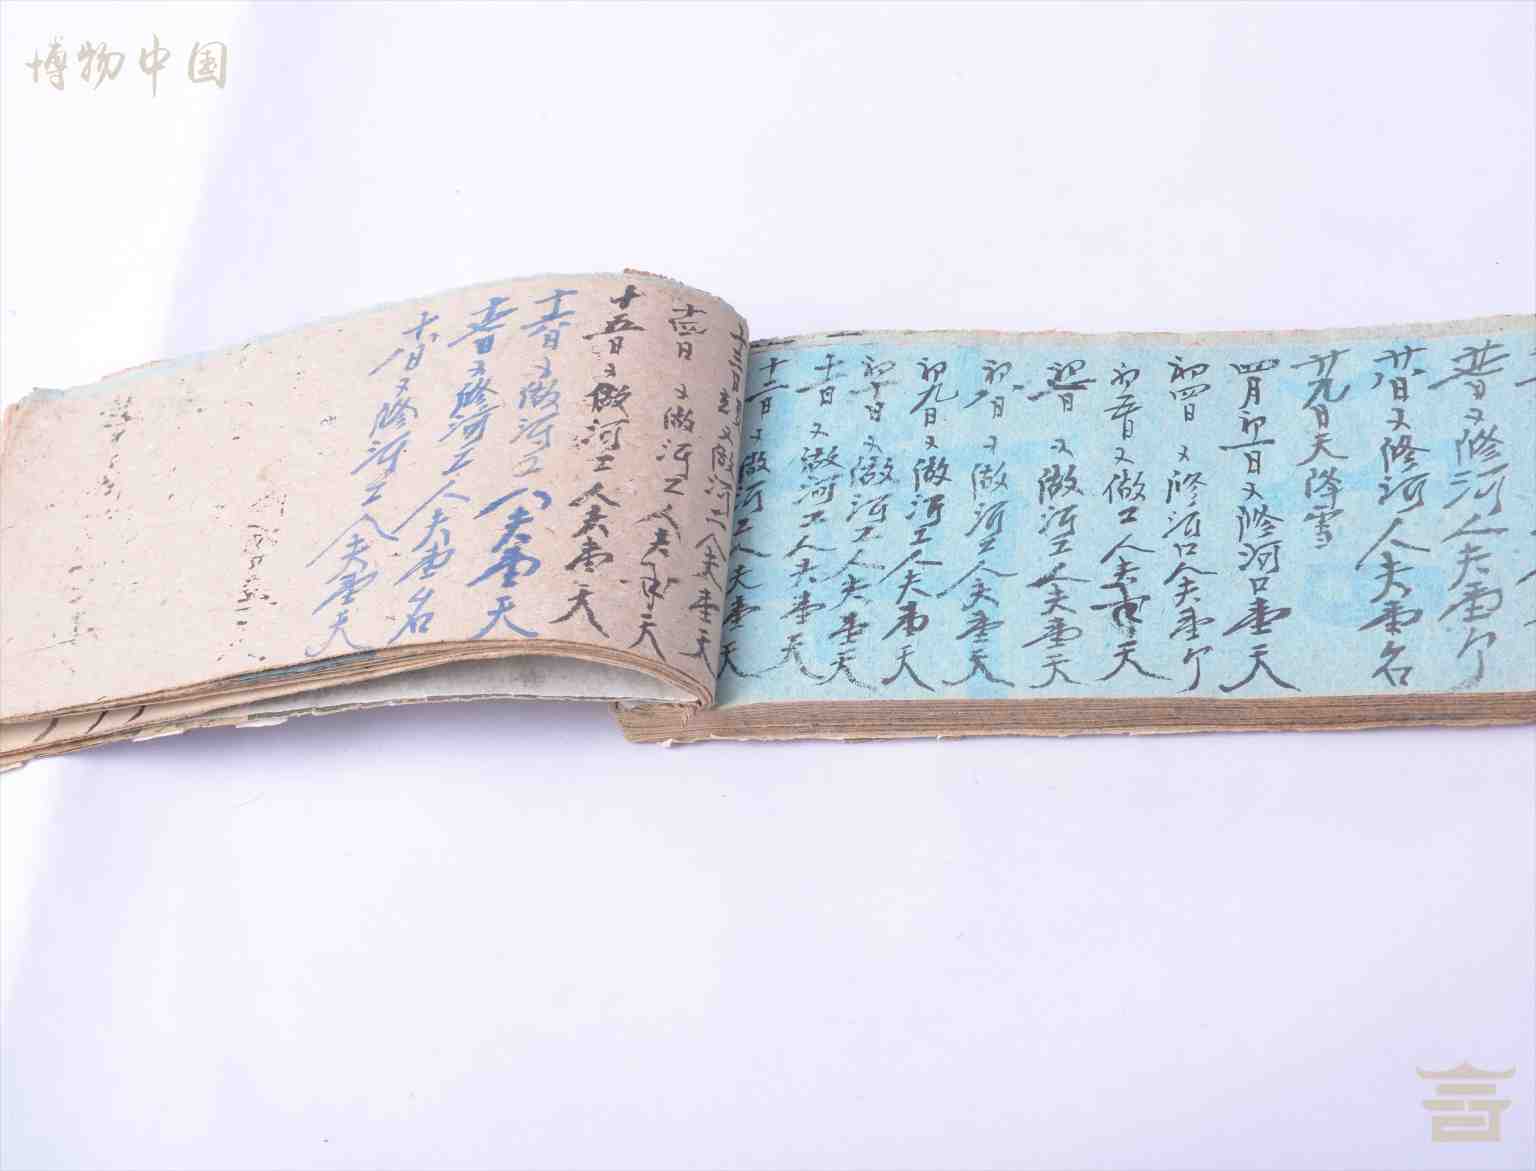 博物中国
廿七日又修河人夫壹个
廿八日又修河人夫壹名
廿九日天降雪
四月初一日又修河口壹天
初四日又修河口人夫壹个
初五日又做工人夫半天
初七日又做河工人夫壹天
初八日又做河工人夫壹天
初九日又做河工人夫壹天
初十日又做河工人夫壹天
十一日又做河工人夫壹天
十二日又做河工人夫壹天
十三日又做河工人夫壹天
十四日又做河工人夫半天
十五日又做河工人夫壹天
十六日又做河工人夫壹天
十七日又修河工人夫壹名
十八日又修河工人夫壹天